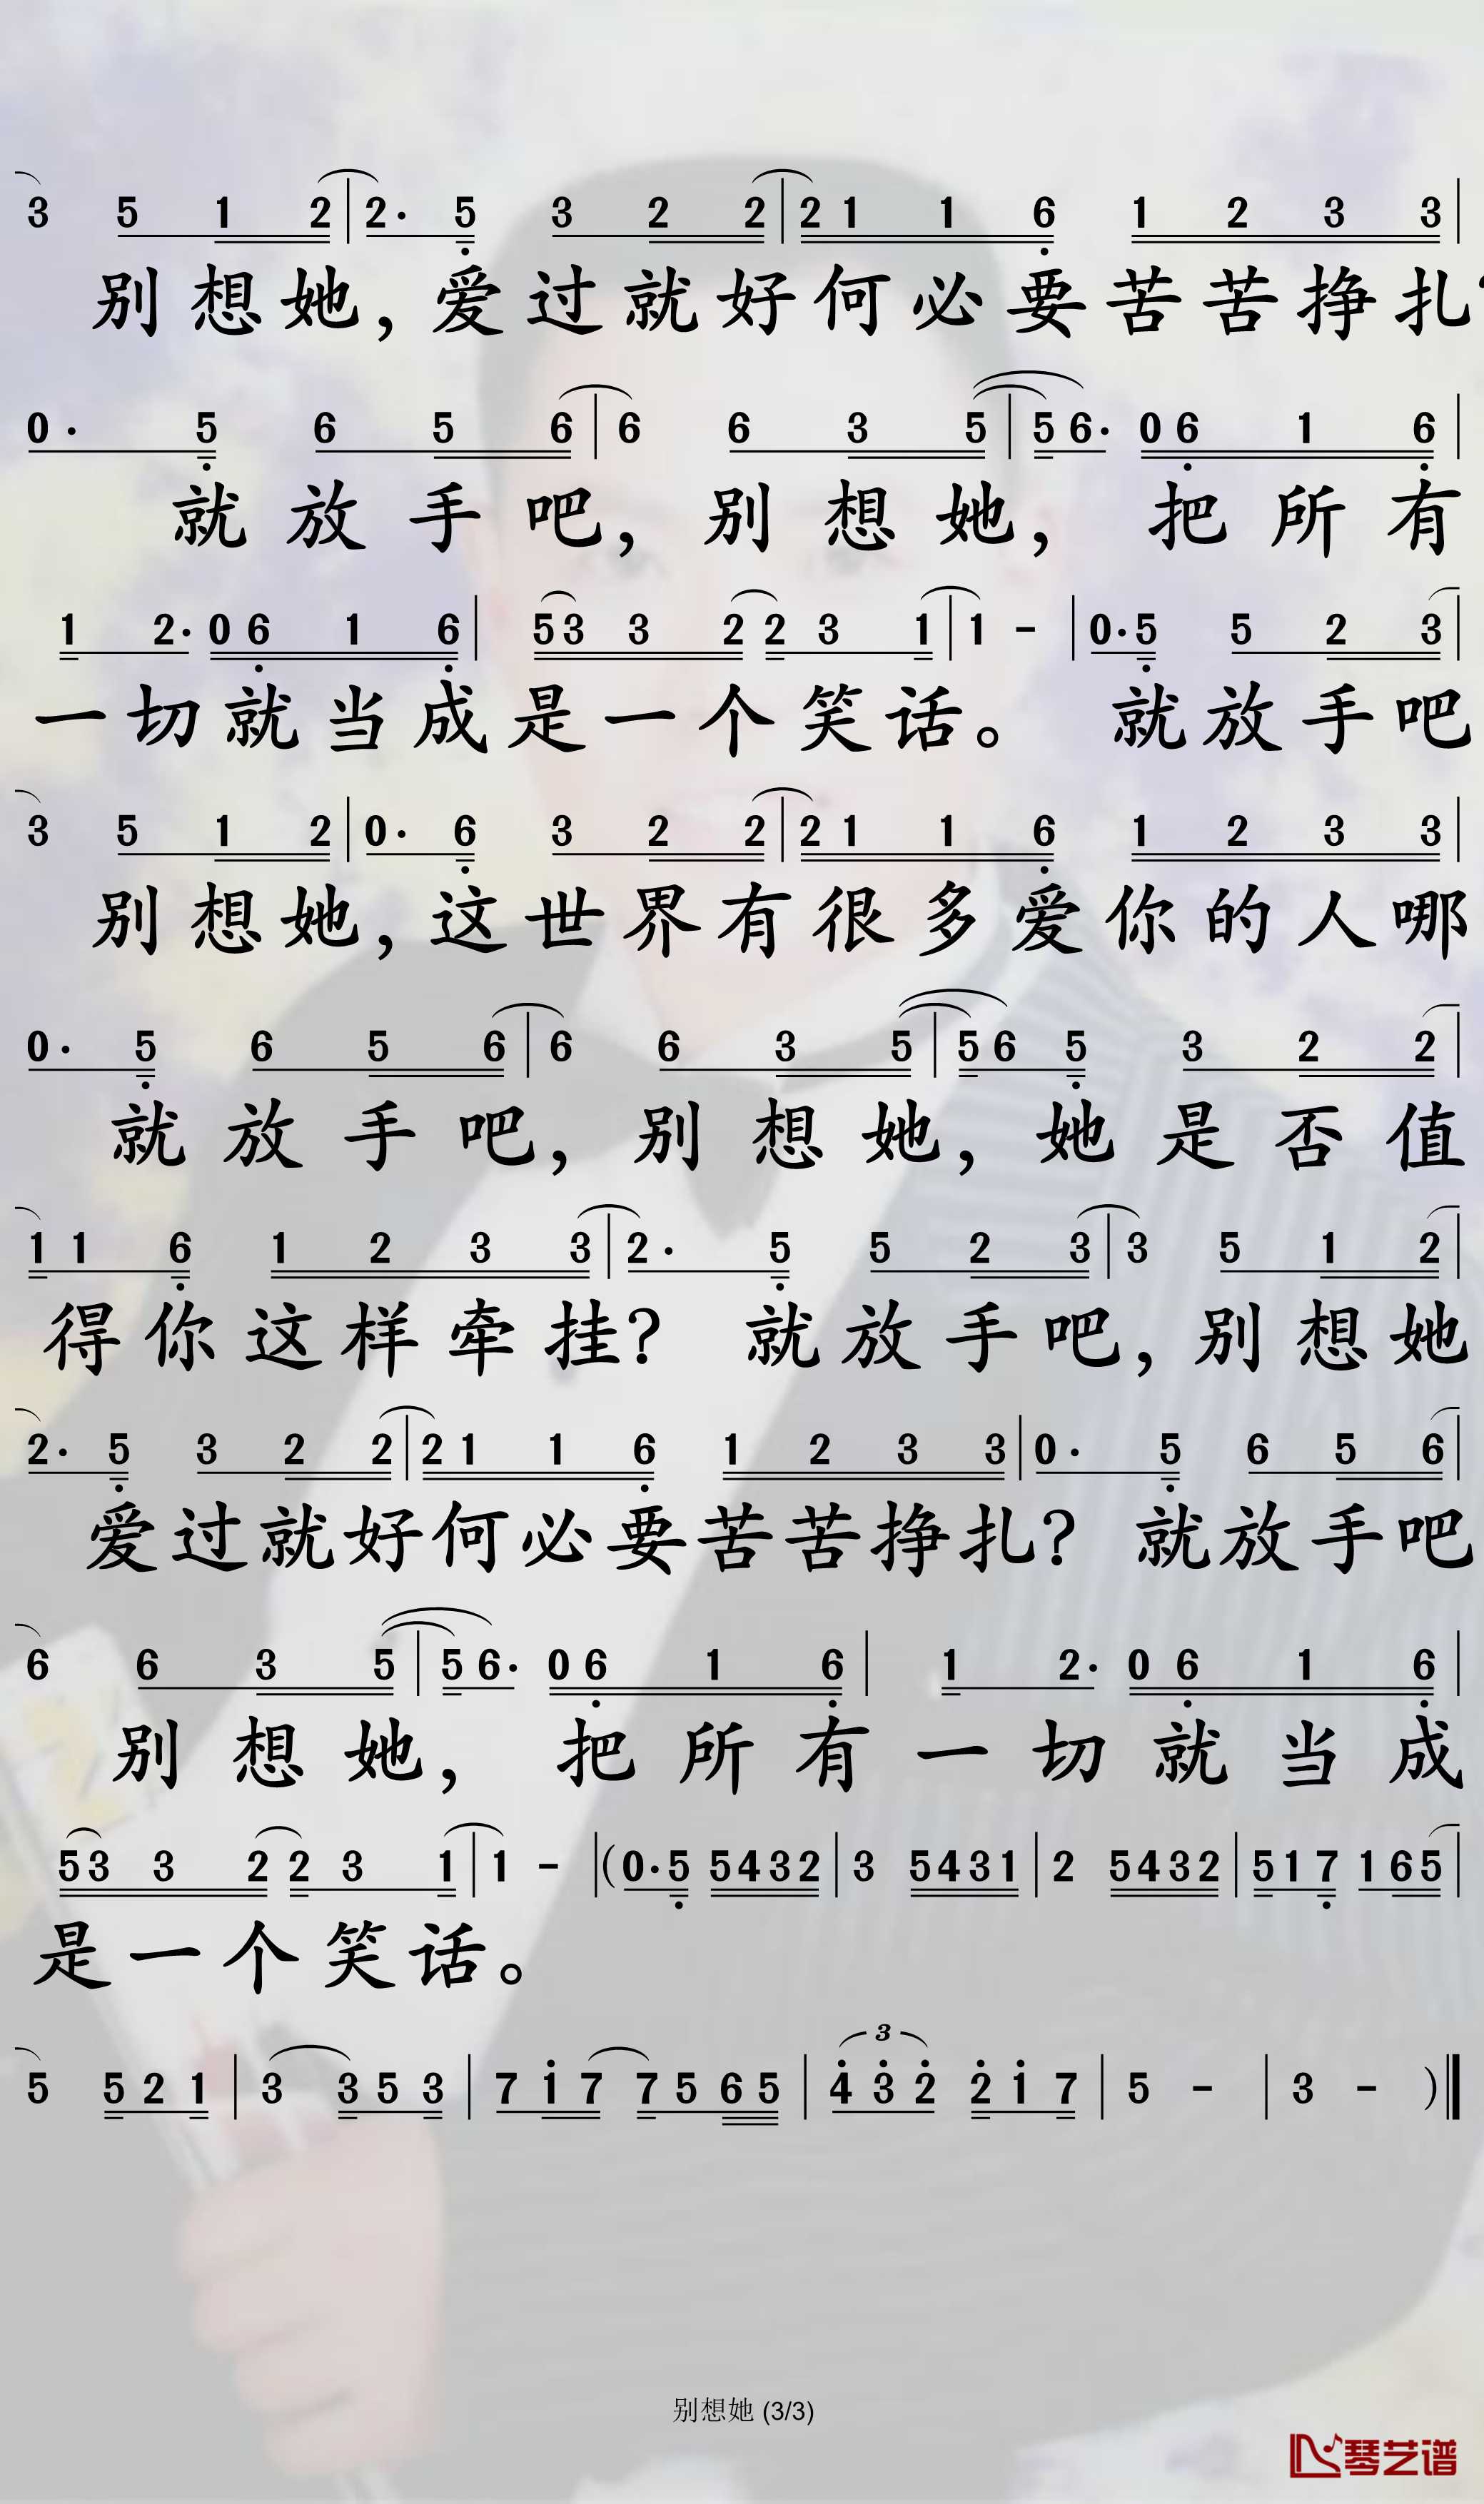 3 5 1 2 | 2. 5 3 2 2 | 2 1 1 6 1 2 3 3 |
别想她，爱过就好何必要苦苦挣扎?
0. 5 6 5 6 | 6 6 3 5 | 5 6. 0 6 1 6 |
就放手吧，别想她，把所有
1 2. 0 6 1 6 | 5 3 3 2 2 3 1 | 1 - | 0. 5 5 2 3 |
一切就当成是一个笑话。就放手吧
3 5 1 2 | 0. 6 3 2 2 | 2 1 1 6 1 2 3 3 |
别想她，这世界有很多爱你的人哪
0. 5 6 5 6 | 6 6 3 5 | 5 6 5 3 2 2 |
就放手吧，别想她，她是否值
1 1 6 1 2 3 3 | 2. 5 5 2 3 | 3 5 1 2 |
得你这样牵挂? 就放手吧，别想她
2. 5 3 2 2 | 2 1 1 6 1 2 3 3 | 0. 5 6 5 6 |
爱过就好何必要苦苦挣扎? 就放手吧
6 6 3 5 | 5 6. 0 6 1 6 | 1 2. 0 6 1 6 |
别想她，把所有一切就当成
5 3 3 2 2 3 1 | 1 - | (0. 5 5 4 3 2 | 3 5 4 3 1 | 2 5 4 3 2 | 5 1 7 1 6 5 |
是一个笑话。
3
5 5 2 1 | 3 3 5 3 | 7 1 7 7 5 6 5 | 4 3 2 2 1 7 | 5 - | 3 - )‖
别想她 (3/3)
琴艺谱